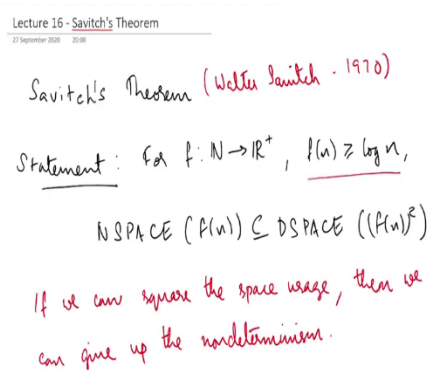 Lecture 16 - Savitch's Theorem
27 September 2020 20:08
Savitch's Theorem (Walter Savitch - 1970)
Statement : For f : ℕ → ℝ⁺ , f(n) ≥ log n,
NSPACE (f(n)) ⊆ DSPACE ((f(n))²)
If we can square the space usage, then we
can give up the nondeterminism.